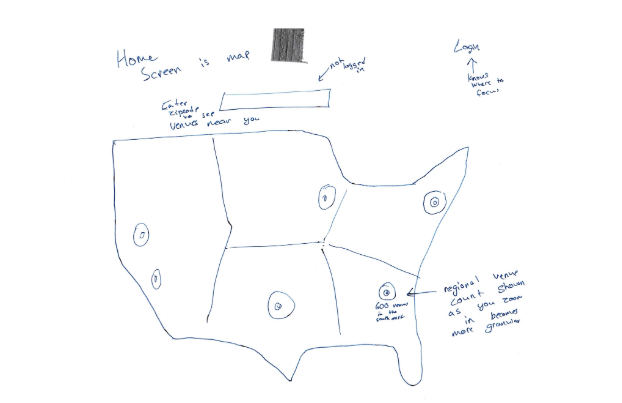 Home
Screen is map
not
logged
in
Login
knows
where to
focus
Enter
zipcode
to see
venues near you
600 venues
in the
southeast
regional venue
count shown
as you zoom
in becomes
more granular